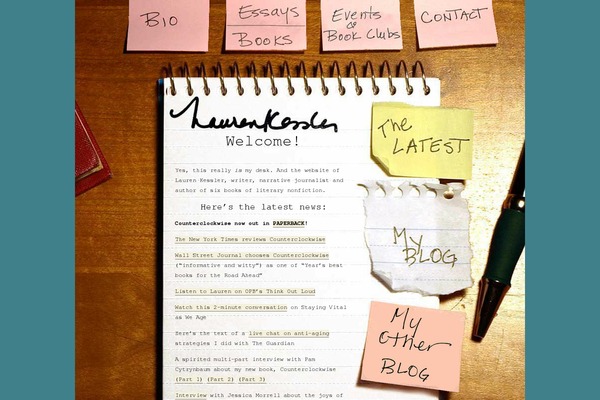 Bio
Essays
Books
Events
& Book Clubs
Contact
Lauren Kessler
Welcome!
Yes, this really is my desk. And the website of
Lauren Kessler, writer, narrative journalist and
author of six books of literary nonfiction.
Here's the latest news:
Counterclockwise now out in PAPERBACK!
The New York Times reviews Counterclockwise
Wall Street Journal chooses Counterclockwise
("informative and witty") as one of "Year's best
books for the Road Ahead"
Listen to Lauren on OPB's Think Out Loud
Watch this 2-minute conversation on Staying Vital
as We Age
Here's the text of a live chat on anti-aging
strategies I did with The Guardian
A spirited multi-part interview with Pam
Cytrynbaum about my new book, Counterclockwise
(Part 1) (Part 2) (Part 3)
Interview with Jessica Morrell about the joys of
The
LATEST
My
BLOG
My
Other
BLOG